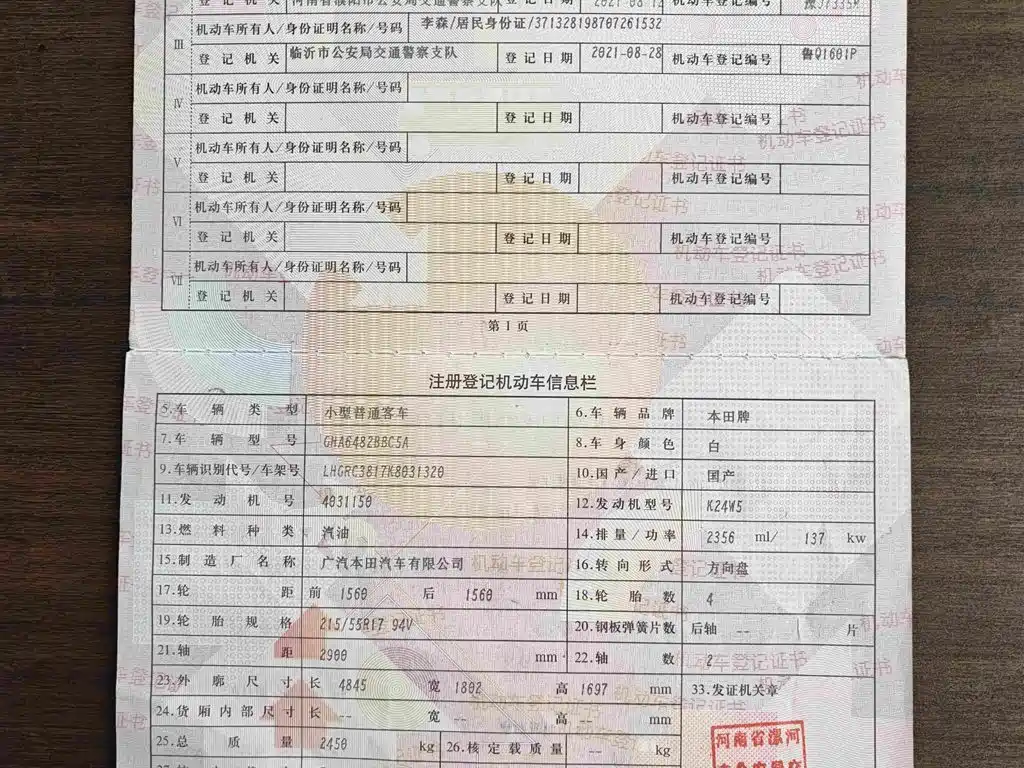 登记机关 河南省濮阳市公安局交通警察支队 登记日期 机动车登记编号 豫J7335R
Ⅲ 机动车所有人/身份证明名称/号码 李森/居民身份证/371328198707261532
登记机关 临沂市公安局交通警察支队 登记日期 2021-08-28 机动车登记编号 鲁Q1601P
Ⅳ 机动车所有人/身份证明名称/号码
登记机关 登记日期 机动车登记编号
Ⅴ 机动车所有人/身份证明名称/号码
登记机关 登记日期 机动车登记编号
Ⅵ 机动车所有人/身份证明名称/号码
登记机关 登记日期 机动车登记编号
Ⅶ 机动车所有人/身份证明名称/号码
登记机关 登记日期 机动车登记编号
第1页
注册登记机动车信息栏
5.车辆类型 小型普通客车 6.车辆品牌 本田牌
7.车辆型号 GHA6482BBC5A 8.车身颜色 白
9.车辆识别代号/车架号 LHGRC3817K8031320 10.国产/进口 国产
11.发动机号 4031150 12.发动机型号 K24W5
13.燃料种类 汽油 14.排量/功率 2356 ml/ 137 kw
15.制造厂名称 广汽本田汽车有限公司 16.转向形式 方向盘
17.轮距 前 1560 后 1560 mm 18.轮胎数 4
19.轮胎规格 215/55R17 94V 20.钢板弹簧片数 后轴 -- 片
21.轴距 2900 mm 22.轴数 2
23.外廓尺寸 长 4845 宽 1802 高 1697 mm 33.发证机关章
24.货厢内部尺寸 长 -- 宽 -- 高 -- mm
25.总质量 2450 kg 26.核定载质量 -- kg
河南省漯河